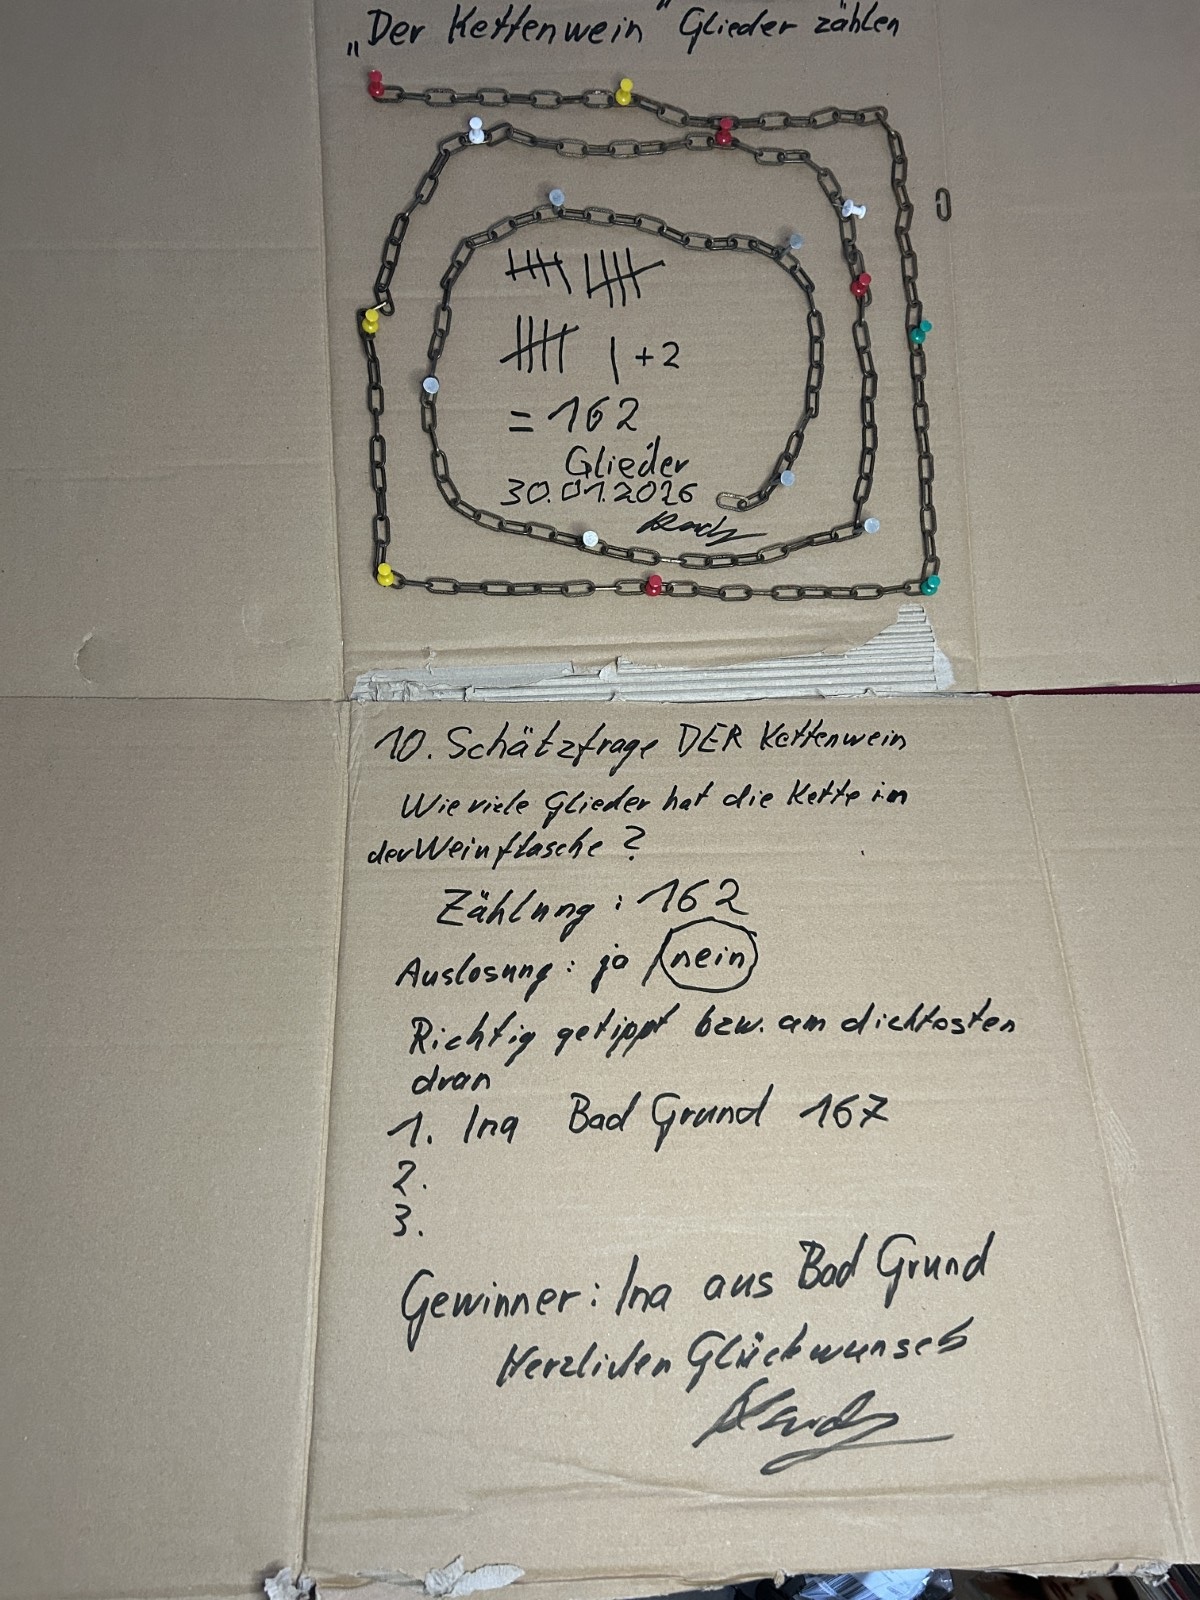 „Der Kettenwein“ Glieder zählen
| + 2
= 162
Glieder
30.01.2026
10. Schätzfrage DER Kettenwein
Wie viele Glieder hat die Kette im
der Weinflasche ?
Zählung : 162
Auslosung : ja / nein
Richtig getippt bzw. am dichtosten
dran
1. Ina Bad Grund 167
2.
3.
Gewinner : Ina aus Bad Grund
Herzlichen Glückwunsch